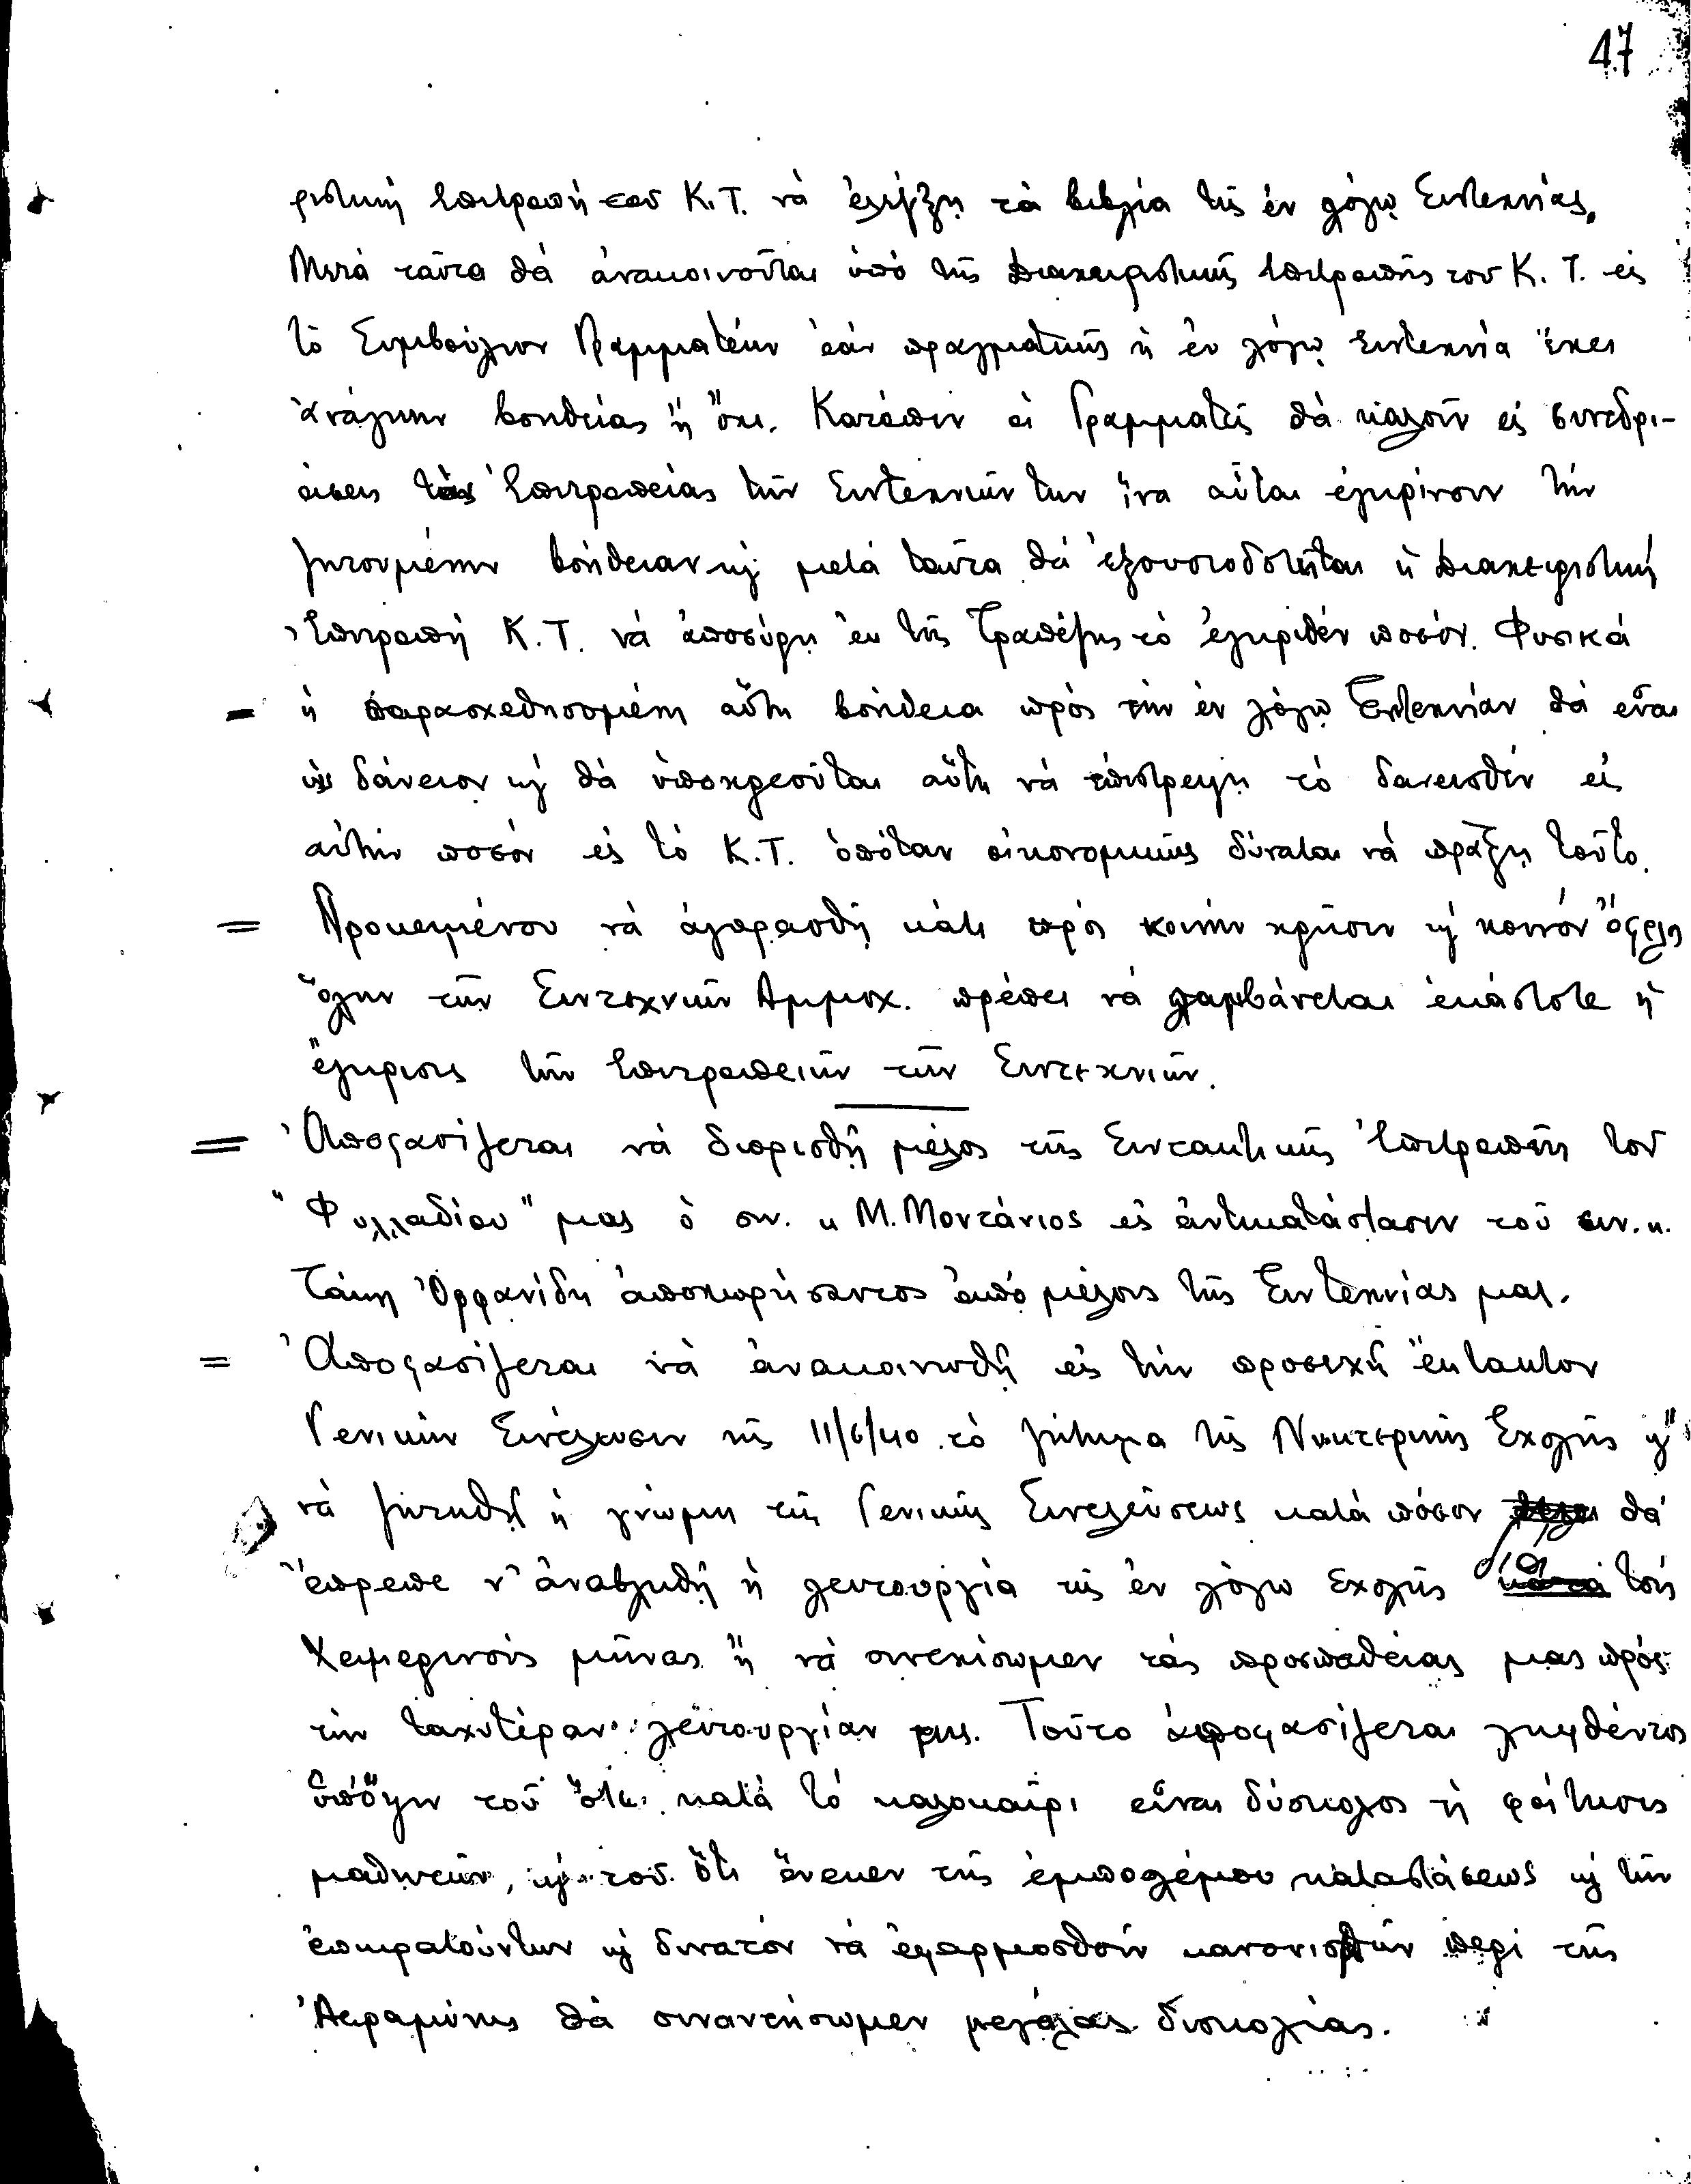 47
ριστικὴ Ἐπιτροπὴ τοῦ Κ.Τ. νὰ ἐλέγξῃ τὰ βιβλία τῆς ἐν λόγῳ Συντεχνίας.
Μετὰ ταῦτα θὰ ἀνακοινοῦται ὑπὸ τῆς Διαχειριστικῆς Ἐπιτροπῆς του Κ.Τ. εἰς
τὸ Συμβούλιον Γραμματέων ἐὰν πραγματικῶς ἡ ἐν λόγῳ Συντεχνία ἔχει
ἀνάγκην βοηθείας ἢ ὄχι. Κατόπιν οἱ Γραμματεῖς θὰ καλοῦν εἰς συνεδρι-
άσεις τὰς Ἐπιτροπείας τῶν Συντεχνιῶν των ἵνα αὗται ἐγκρίνουν τὴν
ζητουμένην βοήθειαν κὶ μετὰ ταῦτα θὰ ἐξουσιοδοτῆται ἡ Διαχειριστικὴ
Ἐπιτροπὴ Κ.Τ. νὰ ἀποσύρῃ ἐκ τῆς Τραπέζης τὸ ἐγκριθὲν ποσόν. Φυσικὰ
- ἡ παρασχεθησομένη αὕτη βοήθεια πρὸς τὴν ἐν λόγῳ Συντεχνίαν θὰ εἶναι
ὡς δάνειον κὶ θὰ ὑποχρεοῦται αὕτη νὰ ἐπιστρέψῃ τὸ δανεισθὲν εἰς
αὐτὴν ποσὸν εἰς τὸ Κ.Τ. ὁπόταν οἰκονομικῶς δύναται νὰ πράξῃ τοῦτο.
= Προκειμένου νὰ ἀγορασθῇ κάτι πρὸς κοινὴν χρῆσιν κὶ κοινὸν ὄφελος
ὅλων τῶν Συντεχνιῶν Αμμοχ. πρέπει νὰ λαμβάνεται ἑκάστοτε ἡ
ἔγκρισις τῶν Ἐπιτροπειῶν τῶν Συντεχνιῶν.
= Ἀποφασίζεται νὰ διορισθῇ μέλος τῆς Συντακτικῆς Ἐπιτροπῆς τοῦ
"Φυλλαδίου" μας ὁ συν. κ Μ. Μοντάνιος εἰς ἀντικατάστασιν τοῦ συν. κ.
Τάκη Ὀρφανίδη ἀποχωρήσαντος ἀπὸ μέλους τῆς Συντεχνίας μας.
= Ἀποφασίζεται νὰ ἀνακοινωθῇ εἰς τὴν προσεχῆ ἔκτακτον
Γενικὴν Συνέλευσιν τῆς 11/6/40 τὸ ζήτημα τῆς Νυκτερινῆς Σχολῆς κὶ
νὰ ζητηθῇ ἡ γνώμη τῆς Γενικῆς Συνελεύσεως κατὰ πόσον θὰ
ἔπρεπε ν' ἀναβληθῇ ἡ λειτουργία τῆς ἐν λόγῳ Σχολῆς διὰ τοὺς
Χειμερινοὺς μῆνας ἢ νὰ συνεχίσωμεν τὰς προσπαθείας μας πρὸς
τὴν ταχυτέραν λειτουργίαν της. Τοῦτο ἀποφασίζεται ληφθέντος
ὑπ' ὄψιν τοῦ ὅτι κατὰ τὸ καλοκαῖρι εἶναι δύσκολος ἡ φοίτησις
μαθητῶν, κὶ τοῦ ὅτι ἕνεκεν τῆς ἐμπολέμου καταστάσεως κὶ τῶν
ἐπικρατούντων κὶ δυνατὸν νὰ ἐφαρμοσθοῦν κανονισμῶν περὶ τῆς
Ἀεραμύνης θὰ συναντήσωμεν μεγάλας δυσκολίας.